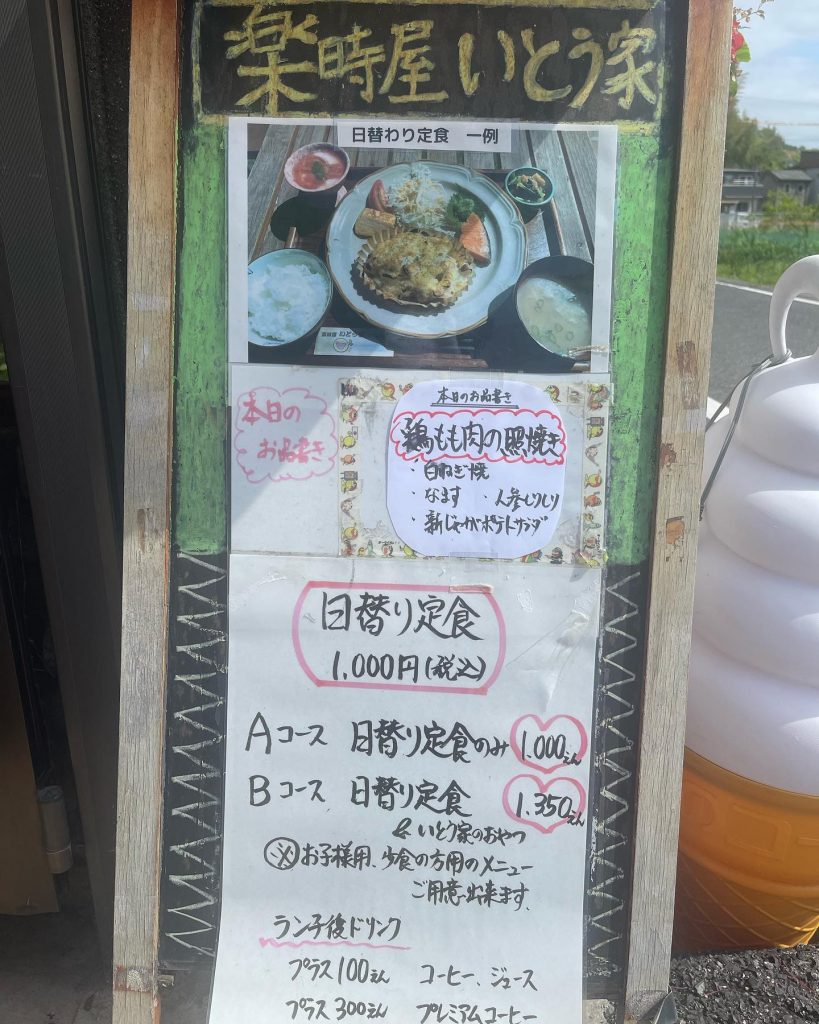 楽時屋 いとう家
日替わり定食 一例
本日の
お品書き
本日のお品書き
鶏もも肉の照焼き
・白ねぎ焼
・なます ・人参しりしり
・新じゃがポテトサラダ
日替り定食
1,000円(税込)
Aコース 日替り定食のみ 1.000えん
Bコース 日替り定食 1.350えん
& いとう家のおやつ
※お子様用、少食の方用のメニュー
ご用意出来ます。
ランチ後ドリンク
プラス100えん コーヒー、ジュース
プラス300えん プレミアムコーヒー